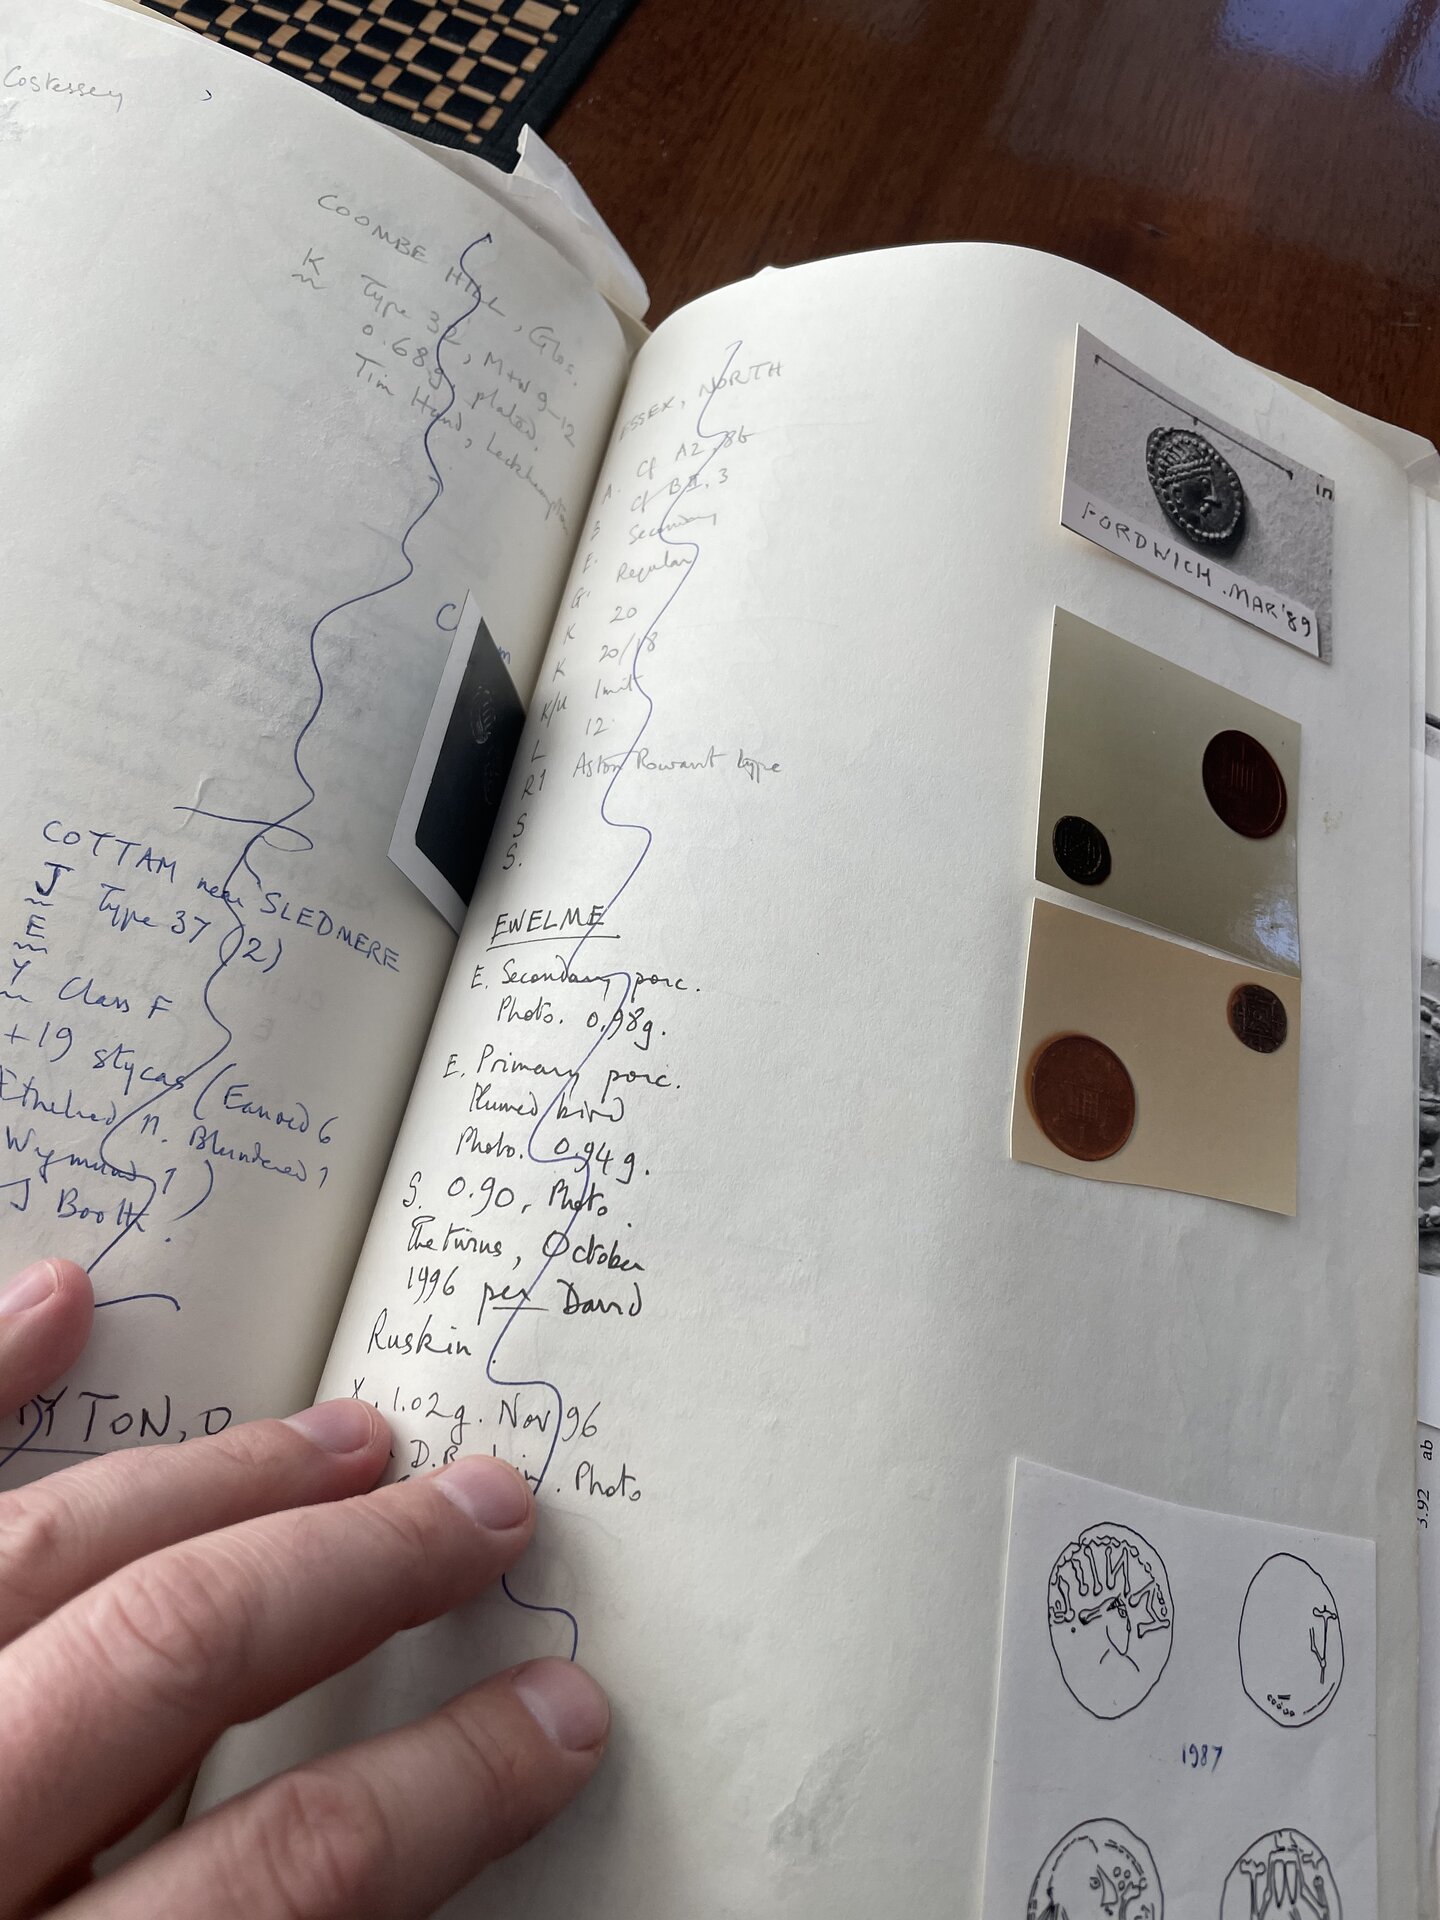 Costessey
COOMBE HILL, Glos.
K Type 32, M+W 9-12
0.68g plated.
Tim Hurd, Leckhampton
COTTAM near SLEDMERE
J Type 37 (2)
E
Y Class F
+19 stycas (Eanred 6
Ethelred 11. Blundered 1
Wigmund 1)
J Booth.
TON, O
ESSEX, NORTH
A. Cf A2, 86
B Cf BII, 3
E. Secondary
G. Regular
K 20
K 20/18
K/U Imit
L 12
R1 Aston Rowant type
S
S.
EWELME
E. Secondary porc.
Photo. 0.98g.
E. Primary porc.
Plumed bird
Photo. 0.94g.
S. 0.90, Photo.
October
1996 per David
Ruskin.
X. 1.02g. Nov 96
Photo
in
FORDWICH. MAR '89
1987
3.92 ab